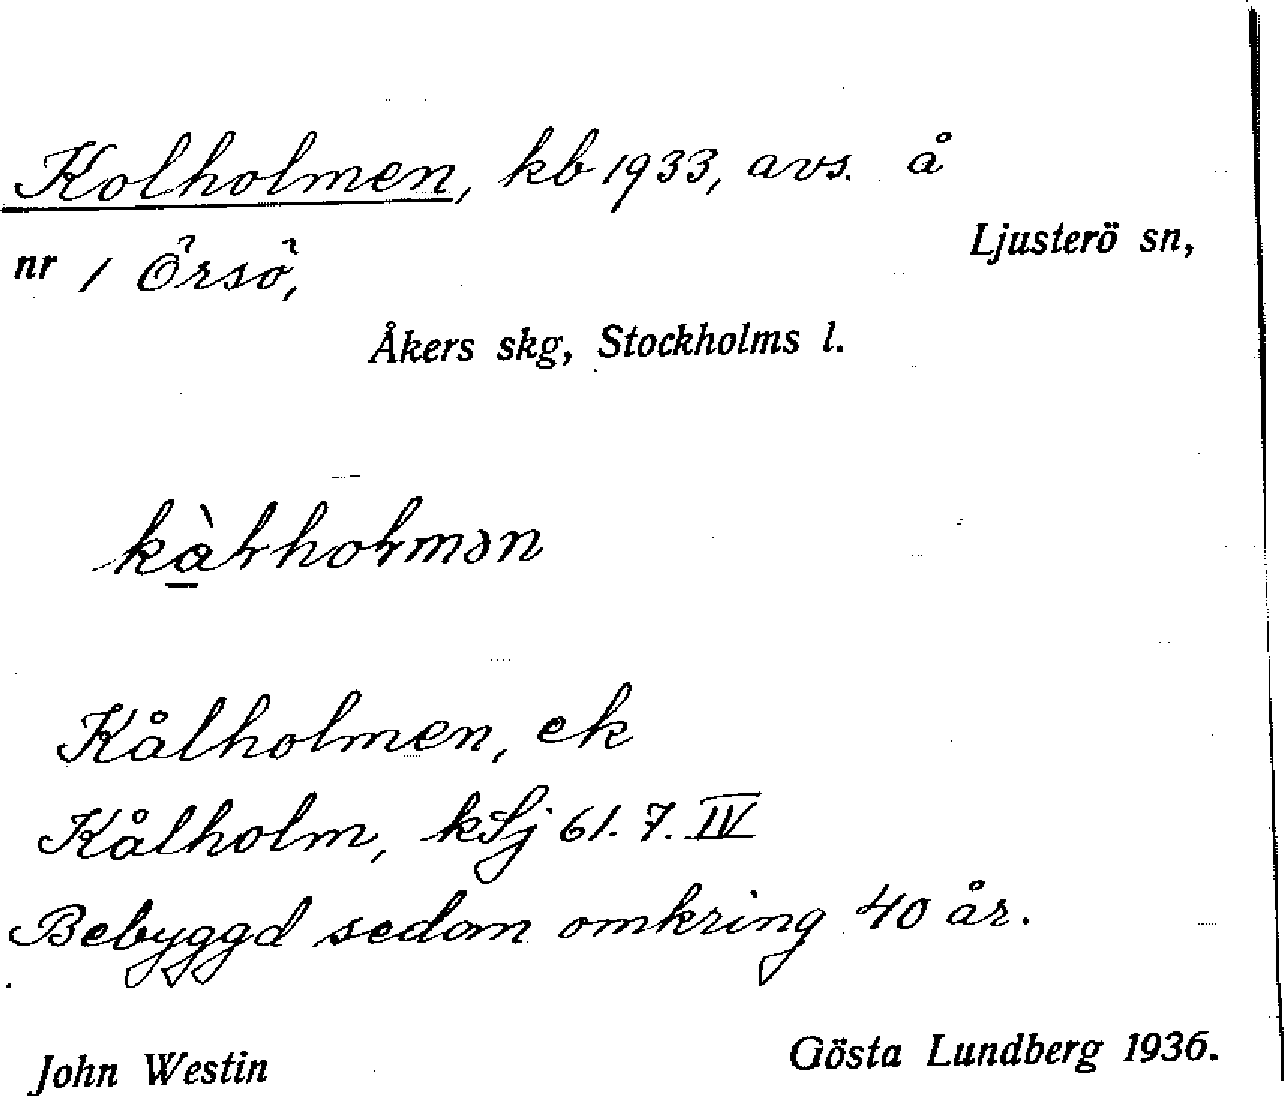 Kolholmen, kb 1933, avs. å
nr 1 Örsö,
Ljusterö sn,
Åkers skg, Stockholms l.
Kålholmen, ek
Kålholm, kSj 61. 7. IV
Bebyggd sedan omkring 40 år.
John Westin
Gösta Lundberg 1936.